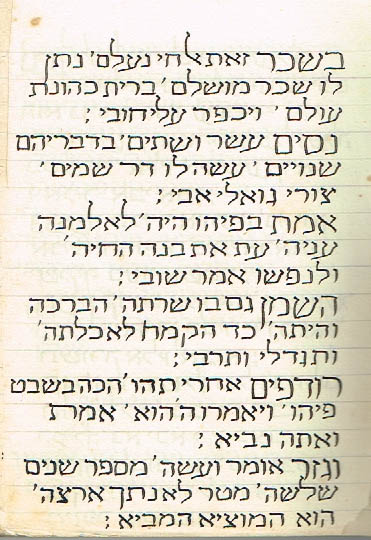 בשכר זאת לחי נעלם׳ נתן
לו שכר מושלם׳ ברית כהונת
עולם׳ ויכפר עליחובי;
נסים עשר ושתים׳ בדבריהם
שנויים׳ עשה לו דר שמים׳
צורי גואלי אבי;
אמת בפיהו היה׳ לאלמנה
עניה׳ עת את בנה החיה׳
ולנפשו אמר שובי;
השמן גם בו שרתה׳ הברכה
והיתה׳ כד הקמח לא כלתה׳
ותגדלי ותרבי;
רודפים אחרי תהו׳ הכה בשבט
פיהו׳ ויאמרו ה׳ הוא׳ אמת
ואתה נביא;
וגזר אומר ועשה׳ מספר שנים
שלשה׳ מטר לא נתך ארצה׳
הוא המוציא המביא;